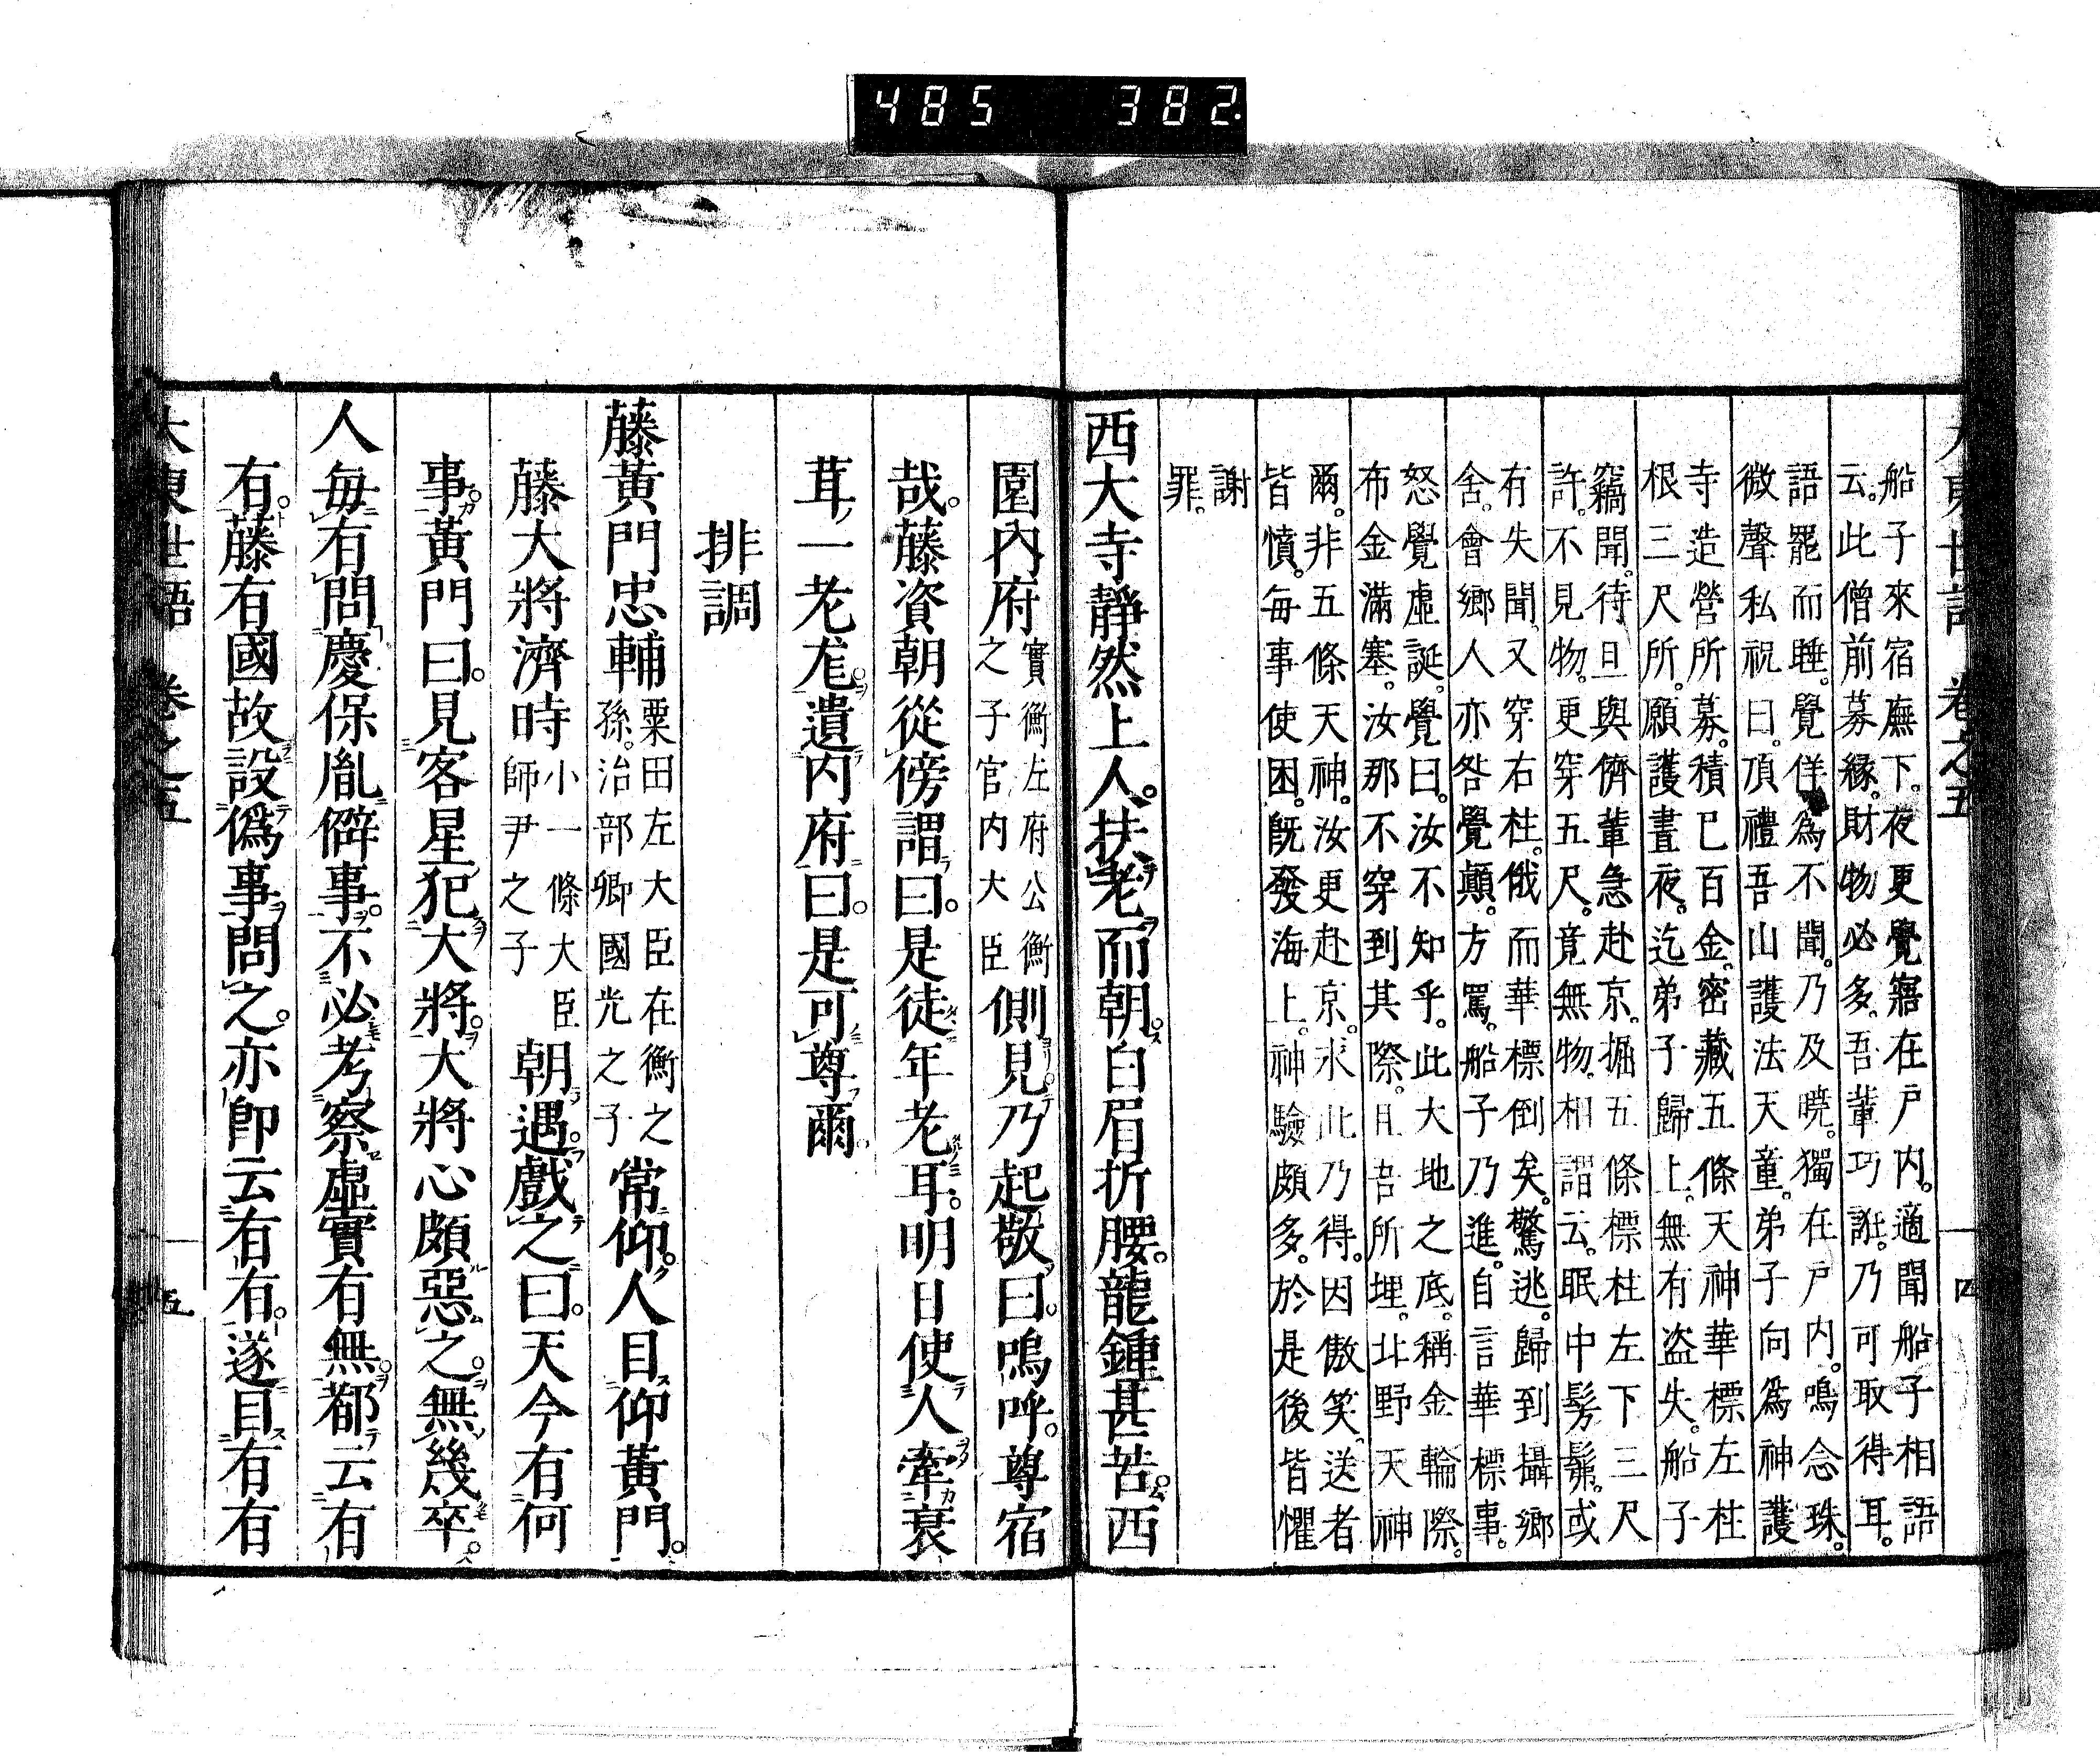 485 382
大東世語 卷之五 四
船子來宿廡下。夜更覺寤在戸内。適聞船子相語
云。此僧前募縁。財物必多。吾輩巧誑。乃可取得耳。
語罷而睡。覺佯爲不聞。乃及曉。獨在戸内。鳴念珠。
微聲私祝曰。頂禮吾山護法天童。弟子向爲神護
寺造營所募。積已百金。密藏五條天神華標左柱
根三尺所。願護晝夜。迄弟子歸上。無有盜失。船子
竊聞。待旦與儕輩急赴京。掘五條標柱左下三尺
許。不見物。更穿五尺。竟無物。相謂云。眠中髣髴。或
有失聞。又穿右柱。俄而華標倒矣。驚逃。歸到攝鄉
舍。會鄉人亦咎覺顚。方罵。船子乃進。自言華標事。
怒覺虛誕。覺曰。汝不知乎。此大地之底。稱金輪際。
布金滿塞。汝那不穿到其際。且吾所埋。北野天神
爾。非五條天神。汝更赴京。求此乃得。因傲笑。送者
皆憤。毎事使困。既發海上。神驗頗多。於是後皆懼
謝
罪。
西大寺靜然上人。扶老而朝。白眉折腰。龍鍾甚苦。西
園内府實衡左府公衡之子官内大臣側見。乃起敬曰。嗚呼。尊宿
哉。藤資朝從傍謂曰。是徒年老耳。明日使人牽衰
茸一老尨。遺内府曰。是可尊爾
排調
藤黃門忠輔粟田左大臣在衡之孫。治部卿國光之子常仰。人目仰黃門。
藤大將濟時小一條大臣師尹之子朝遇。戲之曰。天今有何
事。黃門曰。見客星犯大將。大將心頗惡之。無幾卒。
人毎有問慶保胤僻事。不必考察虛實有無。都云有
有。藤有國故設僞事問之。亦卽云有有。遂目有有
大東世語 卷之五 五